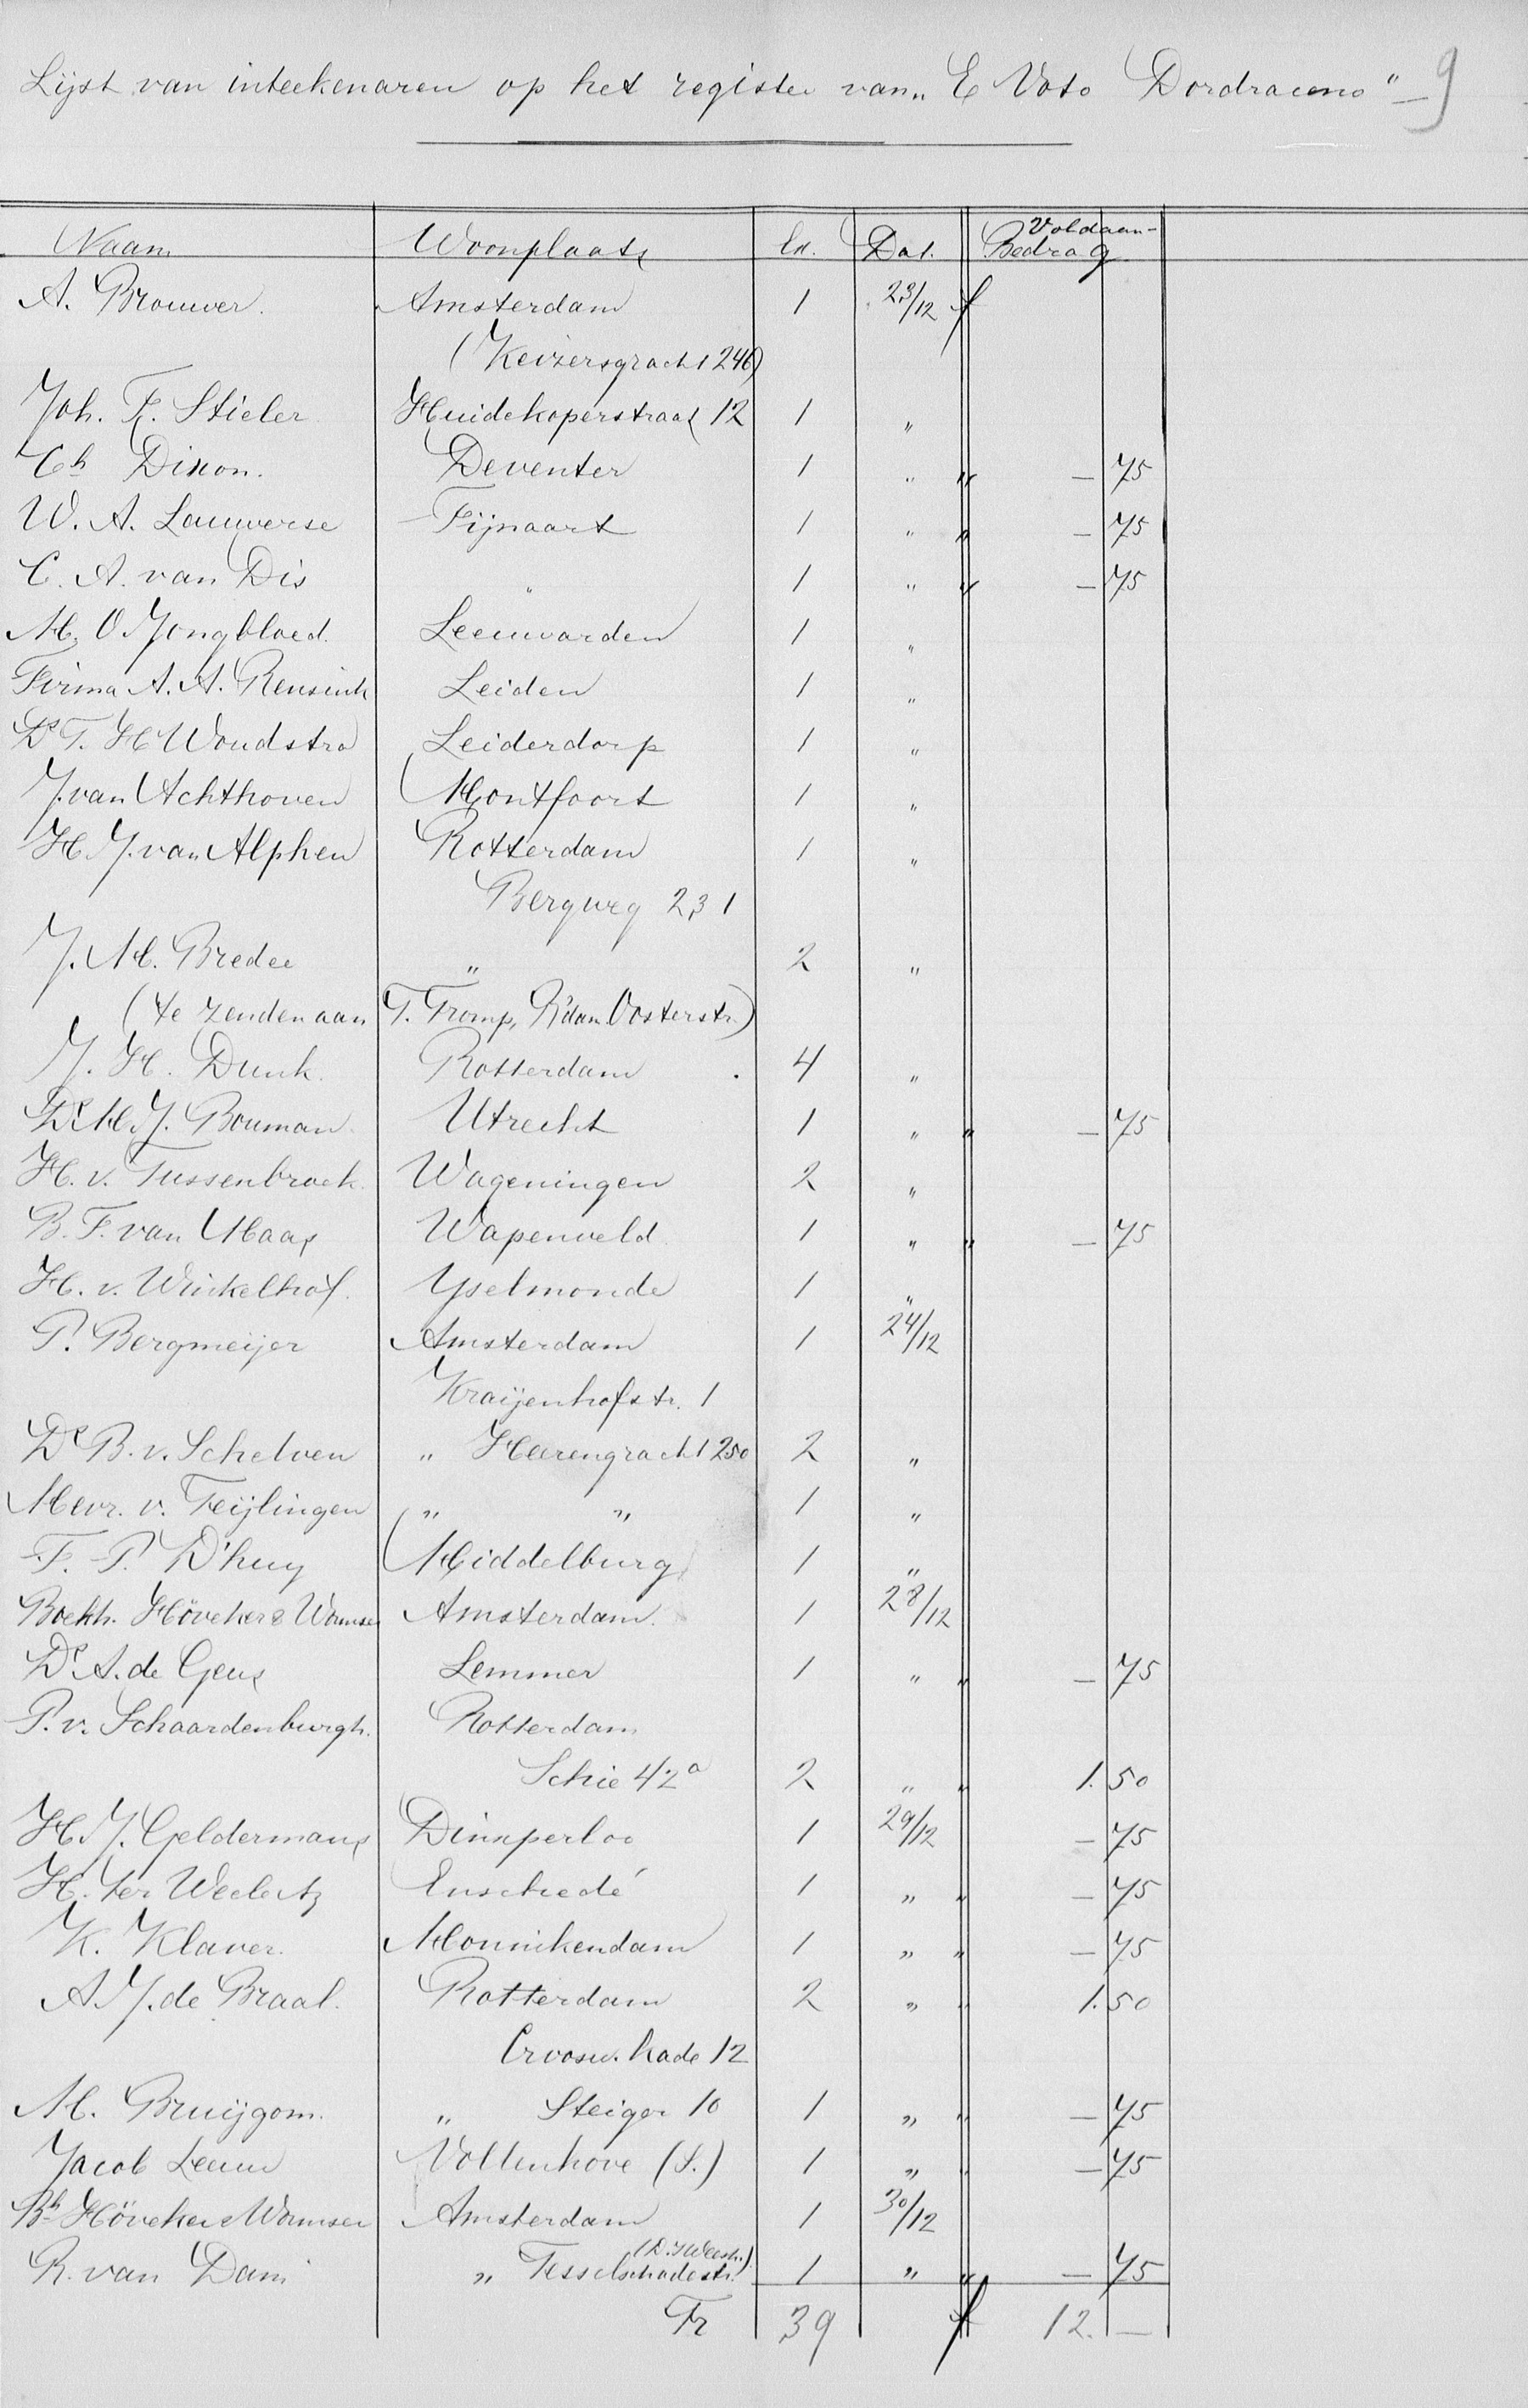 Lijst van inteekenaren op het register van „E Voto Dordraceno" — 9
Naam Woonplaats Ex. Dat. Voldaan- Bedrag
A. Brouwer. Amsterdam 1 23/12 f
(Keizersgracht 246)
Joh. F. Stieler Huidekoperstraat 12 1 „
Ch Dixon. Deventer 1 „ „ — 75
W. A. Louwerse Fijnaart 1 „ „ — 75
C. A. van Dis „ 1 „ „ — 75
M. O Jongbloed. Leeuwarden 1 „
Firma A. A. Rensink Leiden 1 „
Ds T. H Woudstra Leiderdorp 1 „
J. van Achthoven Montfoort 1 „
H. J. van Alphen Rotterdam 1 „
Bergweg 231
J. M. Bredee „ 2 „
(te zenden aan T. Tromp, R'dam. Oosterstr.)
J. H. Dunk. Rotterdam . 4 „
Ds M. J. Bouman. Utrecht 1 „ „ — 75
H. v. Tussenbroek. Wageningen 2 „
B. F. van Maas Wapenveld 1 „ „ — 75
H. v. Winkelhof. Yselmonde 1 „
P. Bergmeijer Amsterdam 1 24/12
Kraijenhofstr. 1
Ds B. v. Schelven „ Heerengracht 250 2 „
Mevr. v. Teijlingen „ „ 1 „
F. P. D'huy Middelburg 1 „
Boekh. Höveker & Wormser Amsterdam. 1 28/12
Ds A. de Geus Lemmer 1 „ „ — 75
P. v. Schaardenburgh. Rotterdam
Schie 42a 2 „ „ 1. 50
H. J. Geldermans Dinxperloo 1 29/12 — 75
H. ter Enschedé 1 „ „ — 75
K. Klaver. Monnikendam 1 „ „ — 75
A. J. de Braal. Rotterdam 2 „ „ 1. 50
kade 12
M. Bruijgom. „ Steiger 10 1 „ „ — 75
Jacob Leeuw Vollenhove (S.) 1 „ „ — 75
Bh Höveker Wormser Amsterdam 1 30/12
R. van Dam „ Tesselschadestr. 1 „ „ — 75
Tr 39 f 12. —